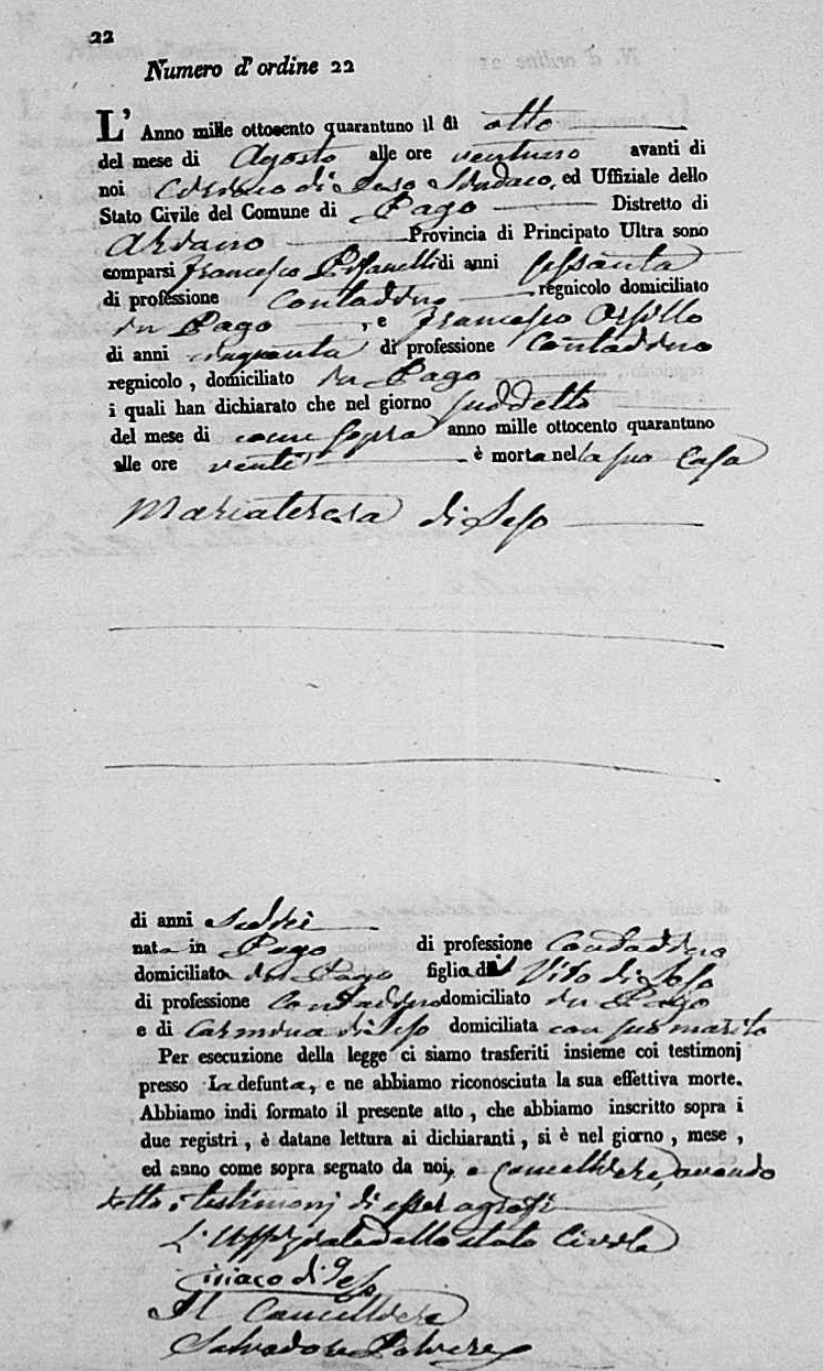 22
Numero d' ordine 22
L' Anno mille ottocento quarantuno il dì otto
del mese di Agosto alle ore ventuno avanti di
noi Ciriaco di Geso Sindaco, ed Uffiziale dello
Stato Civile del Comune di Pago Distretto di
Ariano Provincia di Principato Ultra sono
comparsi Francesco Pisanelli di anni sessanta
di professione Contadino regnicolo domiciliato
in Pago , e Francesco Orsillo
di anni cinquanta di professione Contadino
regnicolo , domiciliato in Pago
i quali han dichiarato che nel giorno suddetto
del mese di come sopra anno mille ottocento quarantuno
alle ore venti è morta nella sua Casa
Mariateresa di Geso
di anni sedici
nata in Pago di professione Contadina
domiciliata in Pago figlia di Vito di Geso
di professione Contadino domiciliato in Pago
e di Carmina di Geso domiciliata con suo marito
Per esecuzione della legge ci siamo trasferiti insieme coi testimonj
presso la defunta, e ne abbiamo riconosciuta la sua effettiva morte.
Abbiamo indi formato il presente atto , che abbiamo inscritto sopra i
due registri , è datane lettura ai dichiaranti , si è nel giorno , mese ,
ed anno come sopra segnato da noi, e Cancelliere, avendo
detto i testimonj di esser agrafi
L'Uffiziale dello stato Civile
Ciriaco di Geso
Il Cancelliere
Salvadore Polvere